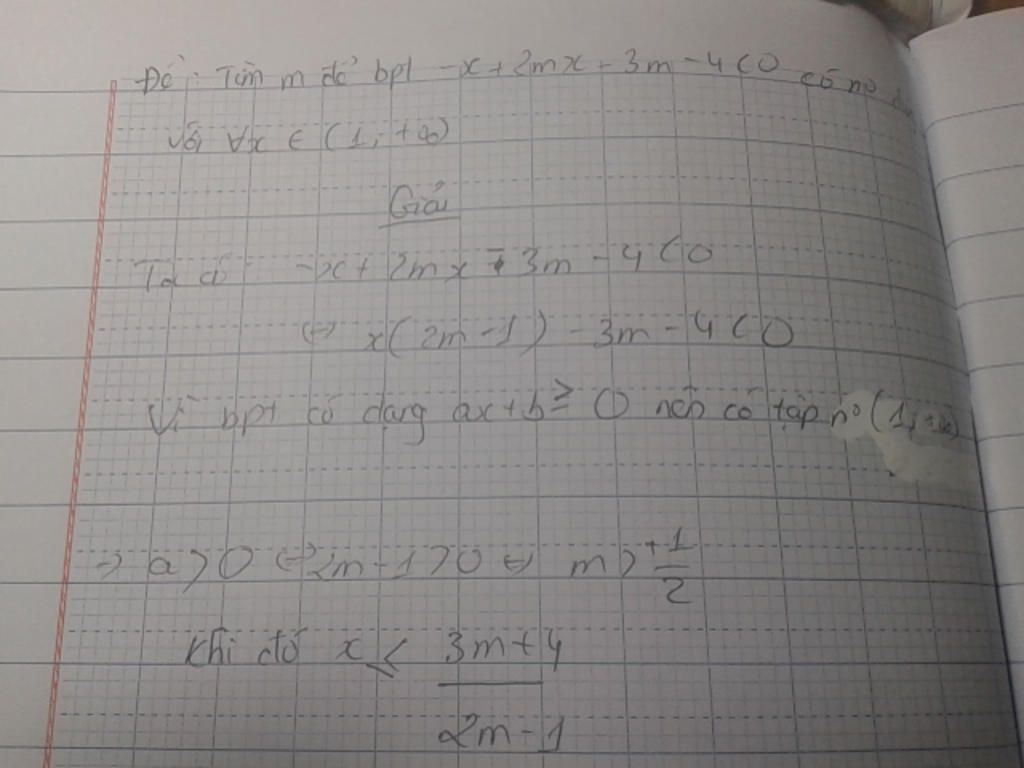 Đề: Tìm m để bpt -x+2mx-3m-4<0 có n°
với ∀x ∈ (1; +∞)
Giải
Ta có -x+2mx-3m-4<0
⇔ x(2m-1)-3m-4<0
Vì bpt có dạng ax+b≥0 nên có tập n° (1;+∞)
→ a>0 ⇔ 2m-1>0 ⇔ m>+1/2
Khi đó x ≤ (3m+4)/(2m-1)